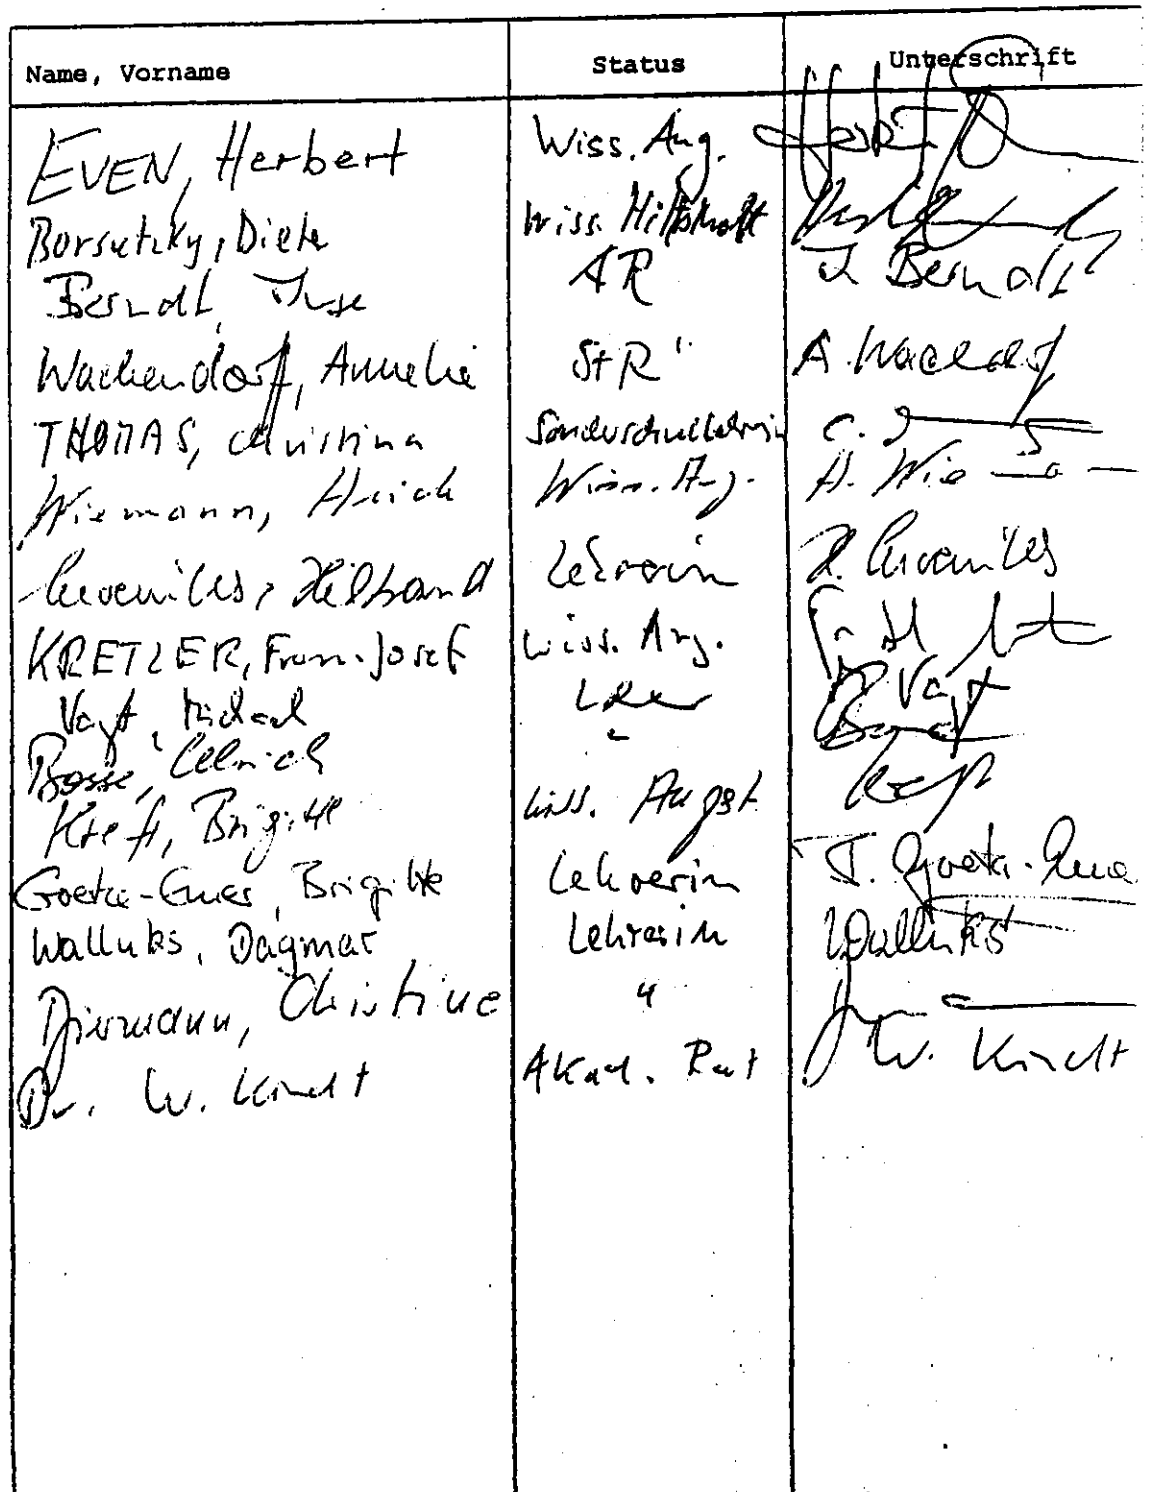 Name, Vorname Status Unterschrift
EVEN, Herbert Wiss. Ang.
Borsutzky, Dieter Wiss. Hilfskraft
Berndt, Inse AR I. Berndt
Wachendorf, Annelie StR A. Wachendorf
THOMAS, Christina Sonderschullehrerin C.
Wiemann, Heich Wiss. Ang. H. Wiemann
Hilbrand Lehrerin H.
KRETZER, Franz-Josef Wiss. Ang.
Vogt, Michael Lehrer Vogt
Bosse, Ullrich " Bosse
Kreft, Brigitte wiss. Angst. Kreft
Goetze-Emer, Brigitte Lehrerin
Walluks, Dagmar Lehrerin Walluks
Biermann, Christine "
Dr. W. Kindt Akad. Rat W. Kindt